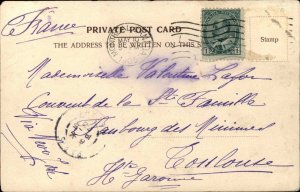 France
PRIVATE POST CARD
THE ADDRESS TO BE WRITTEN ON THIS S
Stamp
Mademoiselle Valentine
Couvent de la Ste Famille
Faubourg des Minimes
Toulouse
Hte Garonne
Via New York